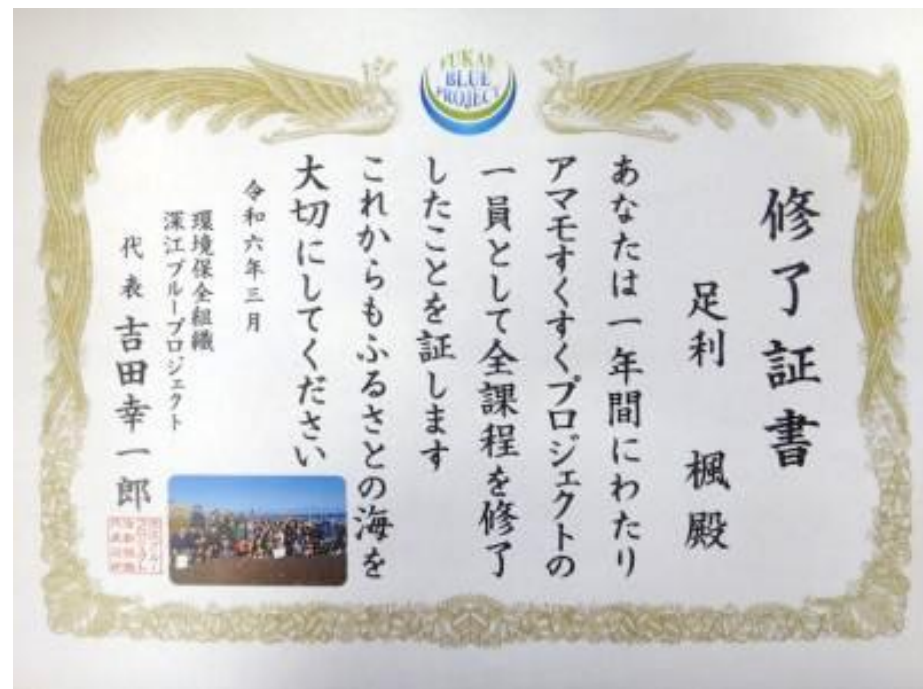 FUKAE
BLUE
PROJECT
修了証書
足利　楓殿
あなたは一年間にわたり
アマモすくすくプロジェクトの
一員として全課程を修了
したことを証します
これからもふるさとの海を
大切にしてください
令和六年三月
環境保全組織
深江ブループロジェクト
代表 吉田幸一郎